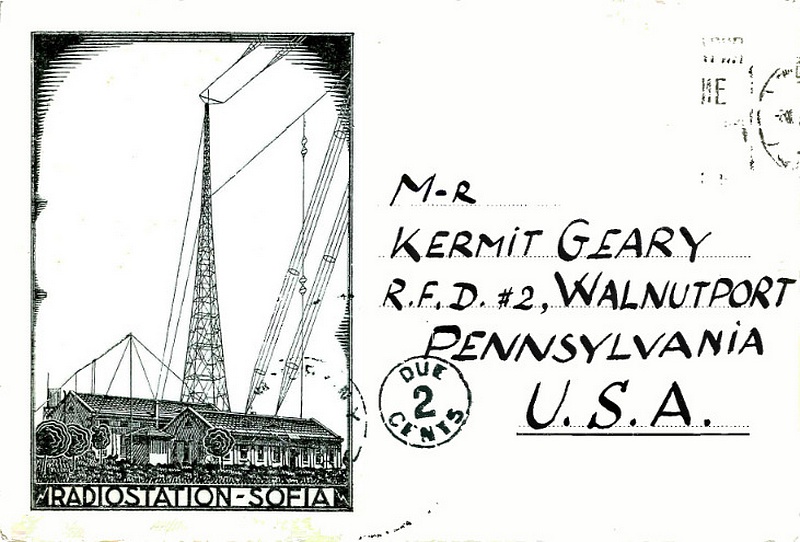 HE
M-R
KERMIT GEARY
R.F.D. #2, WALNUTPORT
PENNSYLVANIA
U.S.A.
DUE
2
CENTS
RADIOSTATION-SOFIA